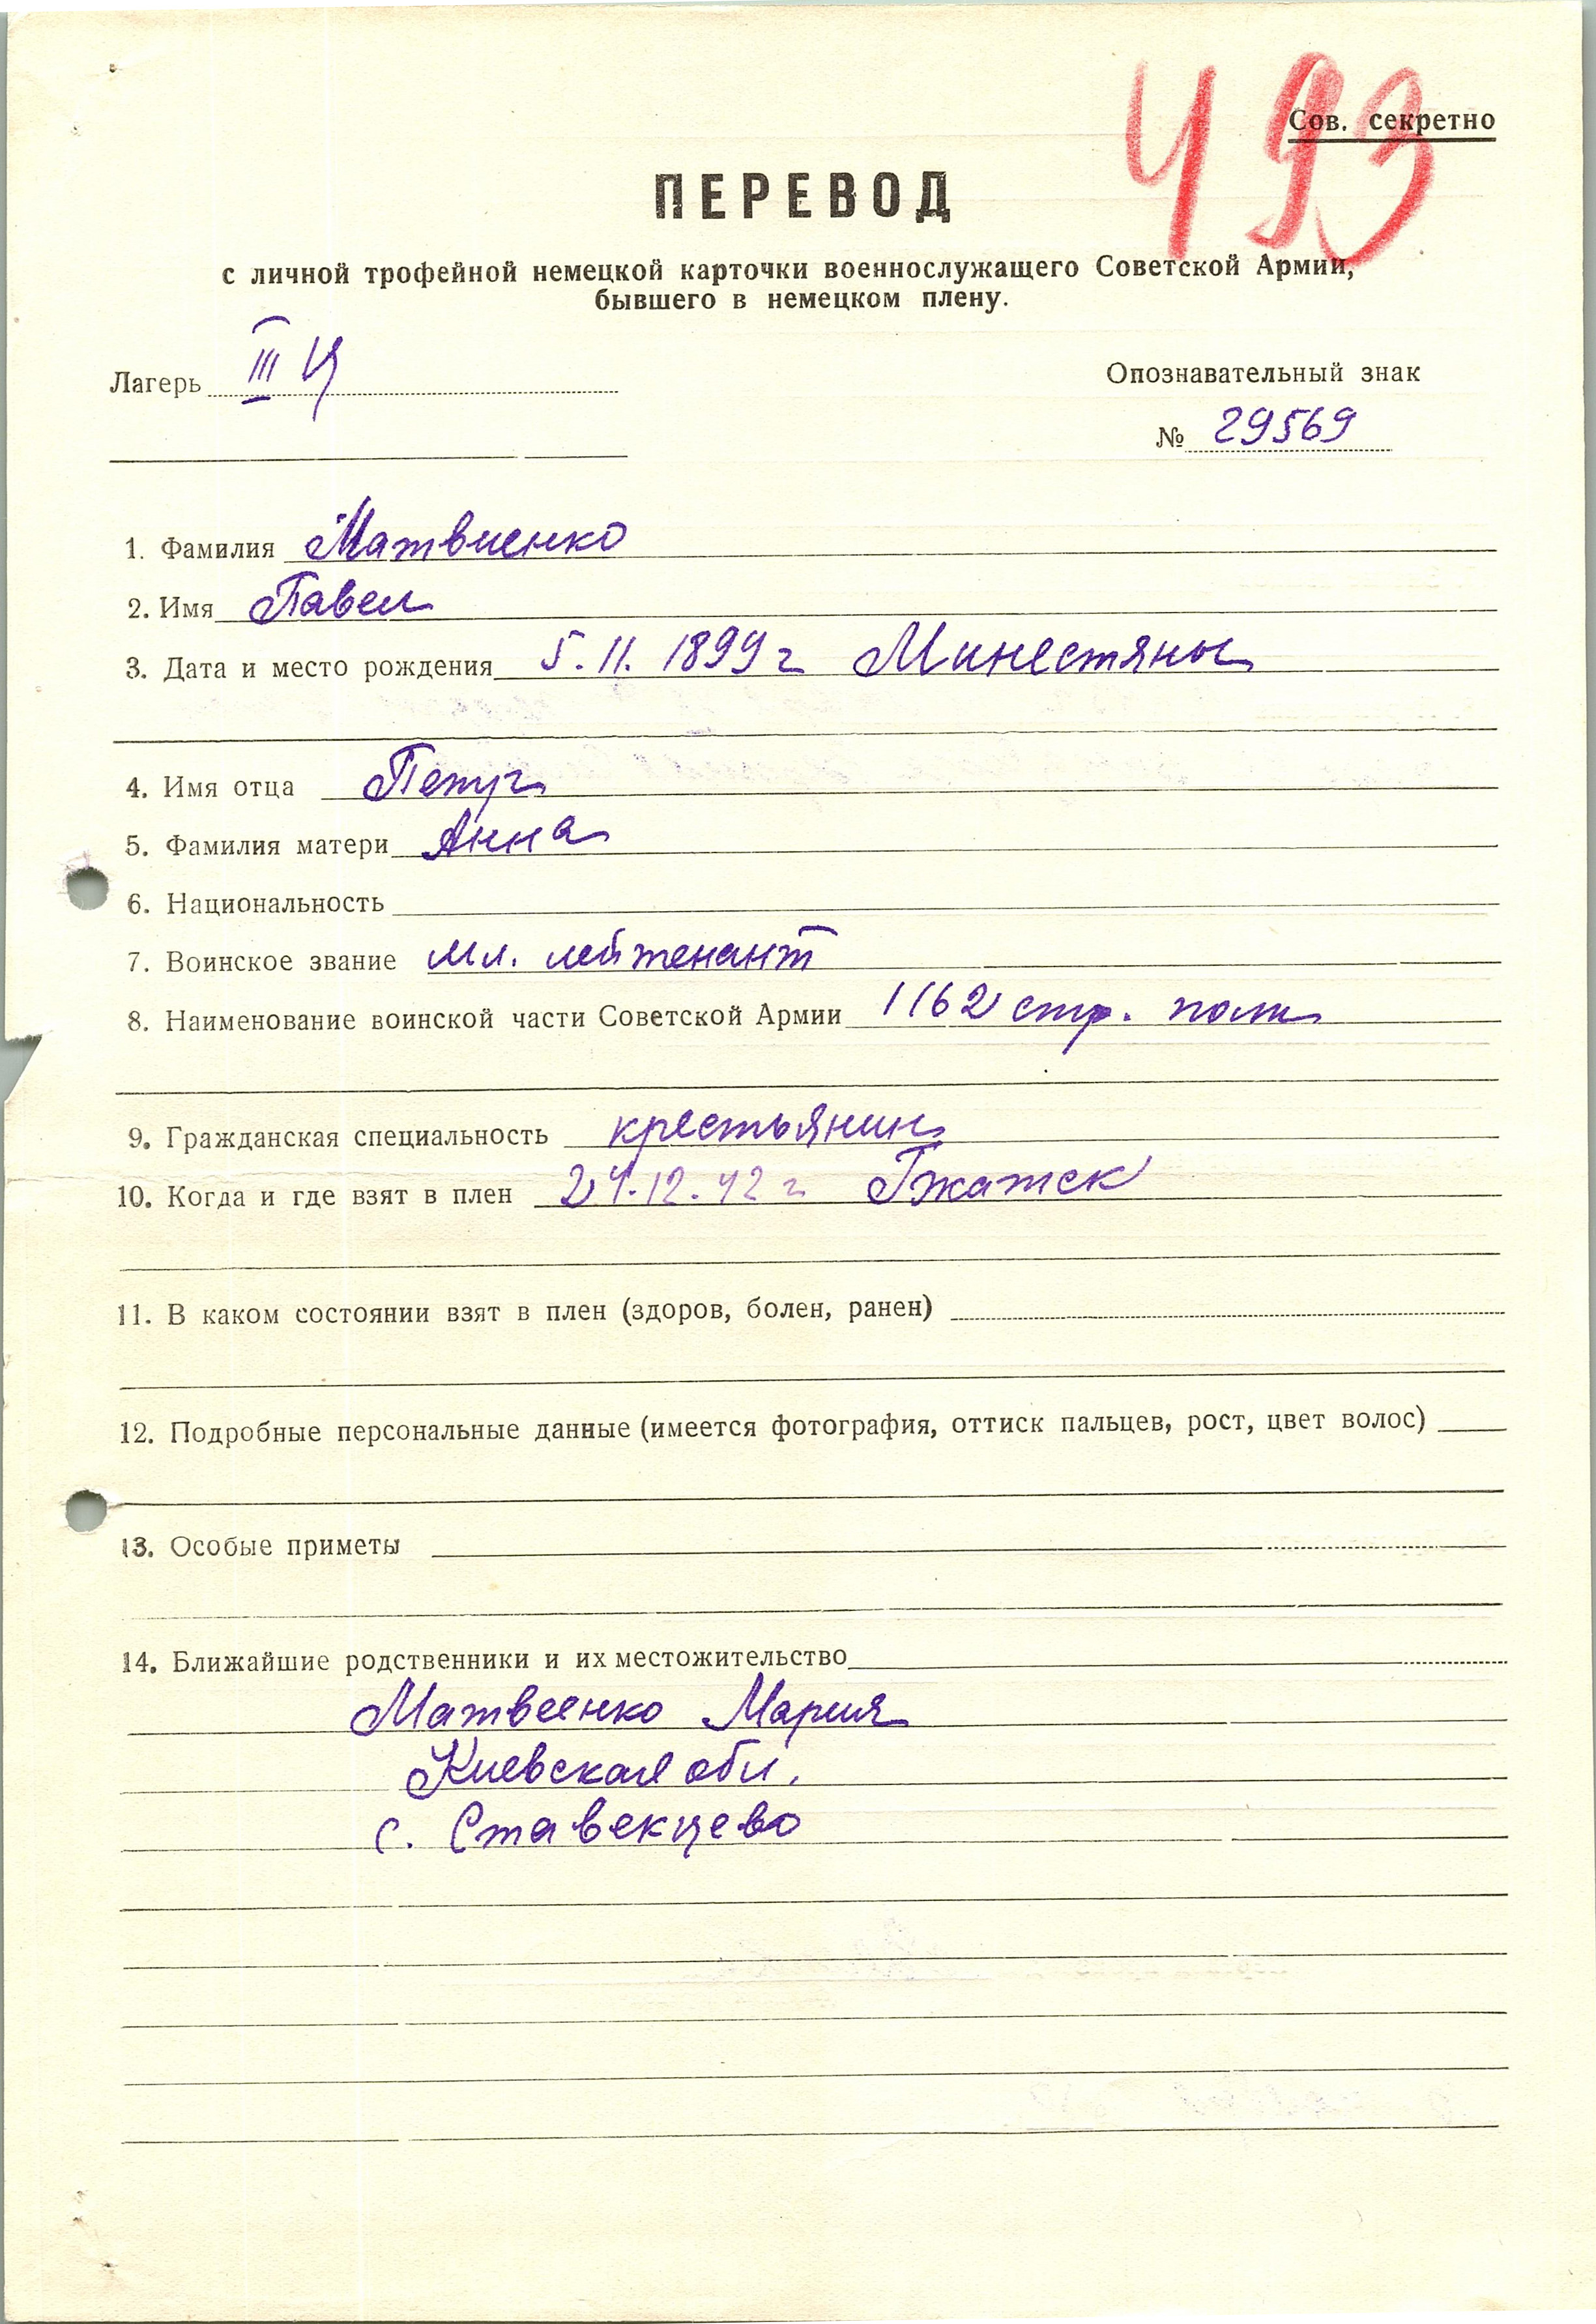 493
Сов. секретно
ПЕРЕВОД
с личной трофейной немецкой карточки военнослужащего Советской Армии,
бывшего в немецком плену.
Лагерь III Ц
Опознавательный знак
№ 29569
1. Фамилия Матвиенко
2. Имя Павел
3. Дата и место рождения 5.11.1899 г Минестяны
4. Имя отца
5. Фамилия матери Анна
6. Национальность
7. Воинское звание мл. лейтенант
8. Наименование воинской части Советской Армии 1162 стр. полк
9. Гражданская специальность крестьянин
10. Когда и где взят в плен 24.12.42 г Гжатск
11. В каком состоянии взят в плен (здоров, болен, ранен)
12. Подробные персональные данные (имеется фотография, оттиск пальцев, рост, цвет волос)
13. Особые приметы
14. Ближайшие родственники и их местожительство
Матвеенко Мария
Киевская обл.
с. Ставекцево